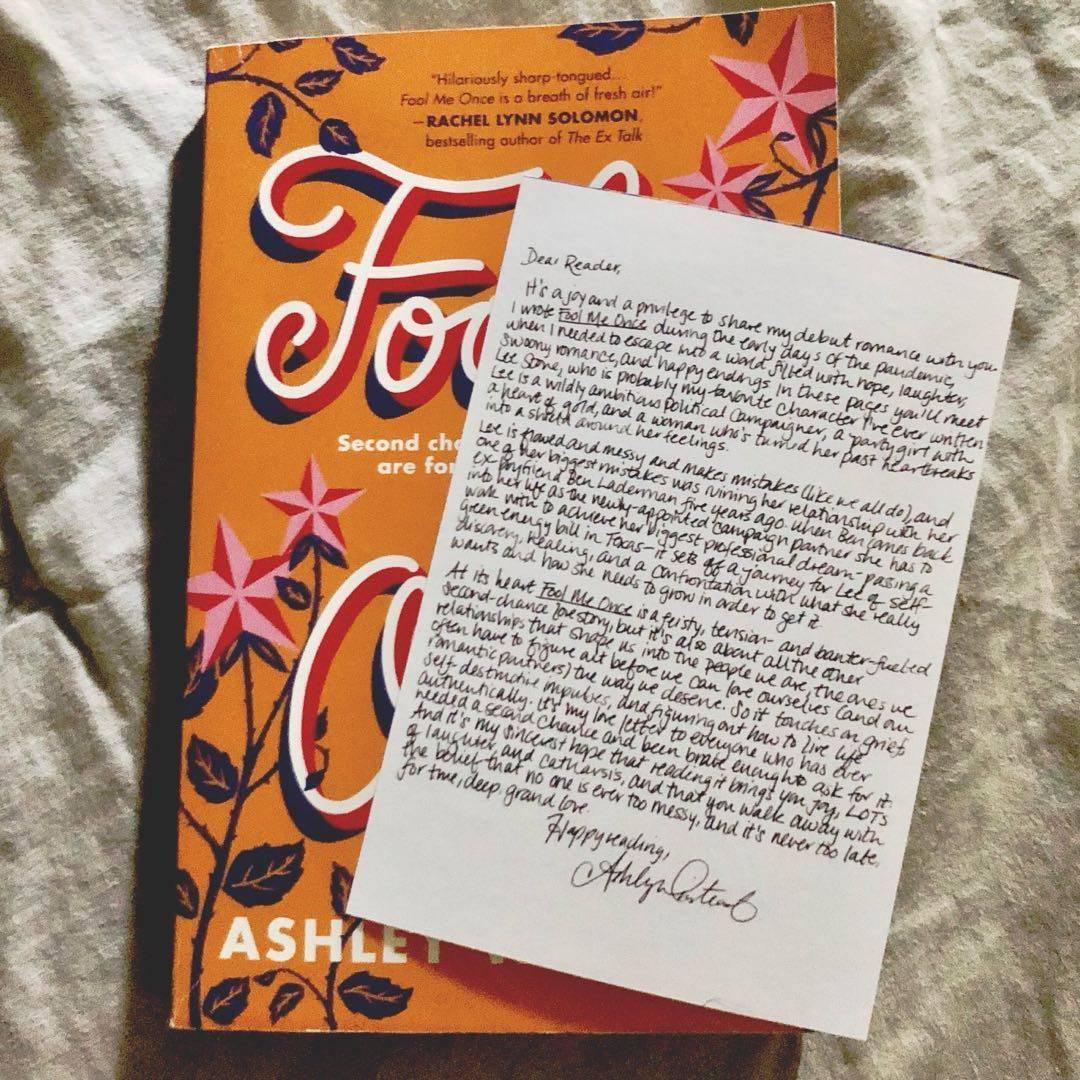 "Hilariously sharp-tongued...
Fool Me Once is a breath of fresh air!"
—RACHEL LYNN SOLOMON,
bestselling author of The Ex Talk
Foo
Second cha
are for
O
ASHLEY W
Dear Reader,
It's a joy and a privilege to share my debut romance with you.
I wrote Fool Me Once during the early days of the pandemic,
when I needed to escape into a world filled with hope, laughter,
swoony romance, and happy endings. In these pages you'll meet
Lee Stone, who is probably my favorite character I've ever written.
Lee is a wildly ambitious political campaigner, a party girl with
a heart of gold, and a woman who's turned her past heartbreaks
into a shield around her feelings.
Lee is flawed and messy and makes mistakes (like we all do), and
one of her biggest mistakes was ruining her relationship with her
ex-boyfriend Ben Laderman five years ago. When Ben comes back
into her life as the newly-appointed campaign partner she has to
work with to achieve her biggest professional dream—passing a
green energy bill in Texas—it sets off a journey for Lee of self-
discovery, healing, and a confrontation with what she really
wants and how she needs to grow in order to get it.
At its heart Fool Me Once is a feisty, tension- and banter-fueled
second-chance love story, but it's also about all the other
relationships that shape us into the people we are, the ones we
often have to figure out before we can love ourselves (and our
romantic partners) the way we deserve. So it touches on grief,
self-destructive impulses, and figuring out how to live life
authentically. It's my love letter to everyone who has ever
needed a second chance and been brave enough to ask for it.
And it's my sincerest hope that reading it brings you joy, LOTS
of laughter, and catharsis, and that you walk away with
the belief that no one is ever too messy, and it's never too late,
for true, deep, grand love.
Happy reading,
Ashley